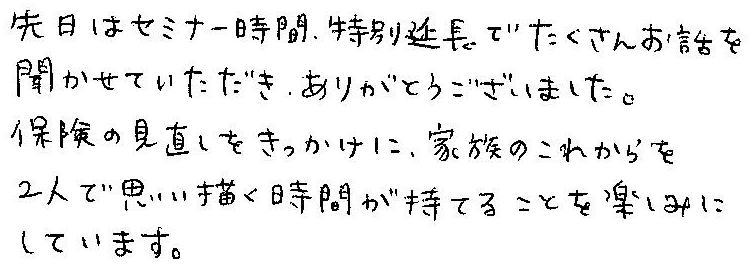 先日はセミナー時間、特別延長でたくさんお話を
聞かせていただき、ありがとうございました。
保険の見直しをきっかけに、家族のこれからを
2人で思い描く時間が持てることを楽しみに
しています。